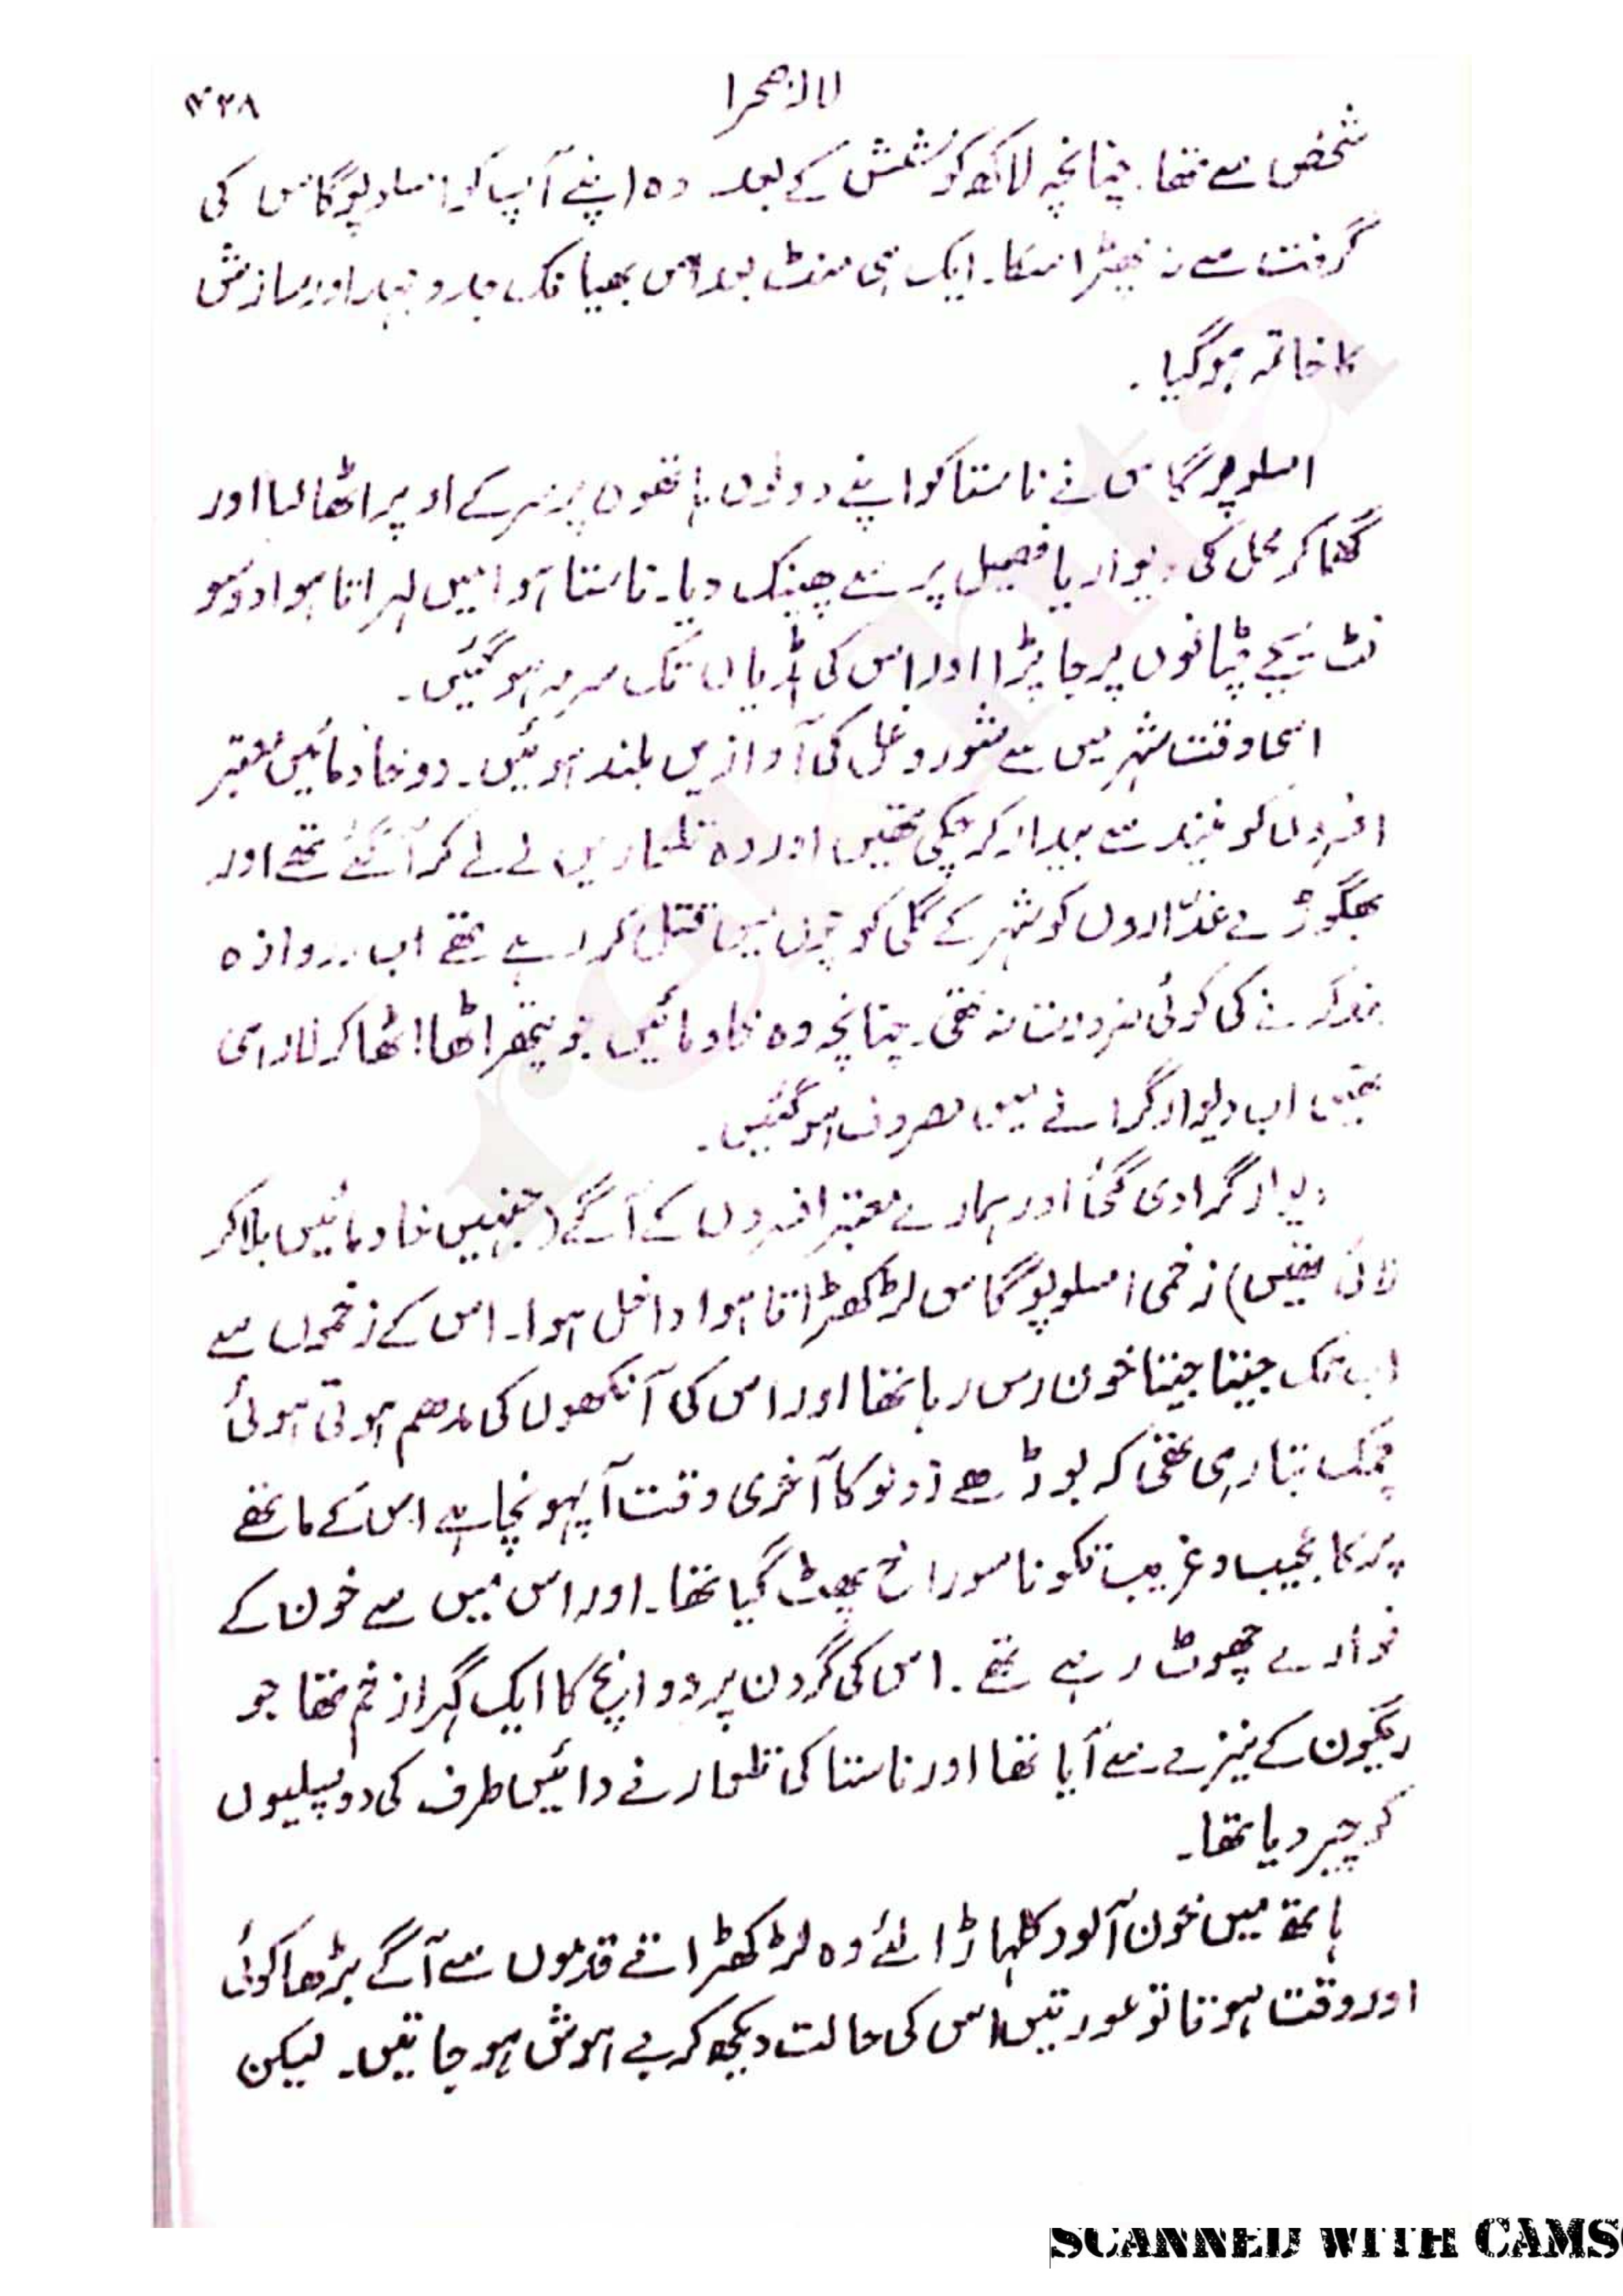 لالہ صحرا
۴۳۸
شخص سے تھا۔ چنانچہ لاکھ کوشش کے بعد وہ اپنے آپ کو امسلوپوگاس کی
گرفت سے نہ چھڑا سکا۔ ایک ہی منٹ بعد اس بھیانک جدوجہد اور سازش
کا خاتمہ ہوگیا۔
امسلوپوگاس نے ناستا کو اپنے دونوں ہاتھوں پر سر کے اوپر اٹھا لیا اور
گھما کر محل کی دیوار یا فصیل پر سے پھینک دیا۔ ناستا ہوا میں لہراتا ہوا دو سو
فٹ نیچے چٹانوں پر جا پڑا اور اس کی ہڈیاں تک سرمہ ہوگئیں۔
اسی وقت شہر میں سے شور و غل کی آوازیں بلند ہوئیں۔ دو خادمائیں معتبر
افسروں کو نیند سے بیدار کر چکی تھیں اور وہ تلواریں لے لے کر آگئے تھے اور
بھگوڑے غدّاروں کو شہر کے گلی کوچوں میں قتل کر رہے تھے اب دروازہ
بند کرنے کی کوئی ضرورت نہ تھی۔ چنانچہ وہ خادمائیں جو پتھر اٹھا اٹھا کر لا رہی
تھیں اب دیوار گرانے میں مصروف ہوگئیں۔
دیوار گرادی گئی اور ہمارے معتبر افسروں کے آگے (جنہیں خادمائیں بلا کر
لائی تھیں) زخمی امسلوپوگاس لڑکھڑاتا ہوا داخل ہوا۔ اس کے زخموں سے
اب تک جیتا جیتا خون رس رہا تھا اور اس کی آنکھوں کی مدھم ہوتی ہوئی
چمک بتا رہی تھی کہ بوڑھے زولو کا آخری وقت آ پہونچا ہے اس کے ماتھے
پر کا عجیب و غریب تکونا سوراخ پھٹ گیا تھا۔ اور اس میں سے خون کے
فوارے چھوٹ رہے تھے۔ اس کی گردن پر دو انچ کا ایک گہرا زخم تھا جو
ریگون کے نیزے سے آیا تھا اور ناستا کی تلوار نے دائیں طرف کی دو پسلیوں
کو چیر دیا تھا۔
ہاتھ میں خون آلود کلہاڑا لئے وہ لڑکھڑاتے قدموں سے آگے بڑھا کوئی
اور وقت ہوتا تو عورتیں اس کی حالت دیکھ کر بے ہوش ہو جاتیں۔ لیکن
SCANNED WITH CAMS